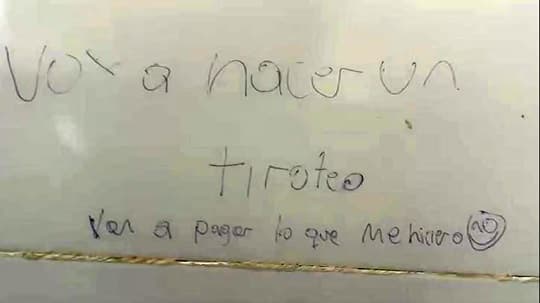 Voy a hacer un
tiroteo
Van a pagar lo que Me hiciero